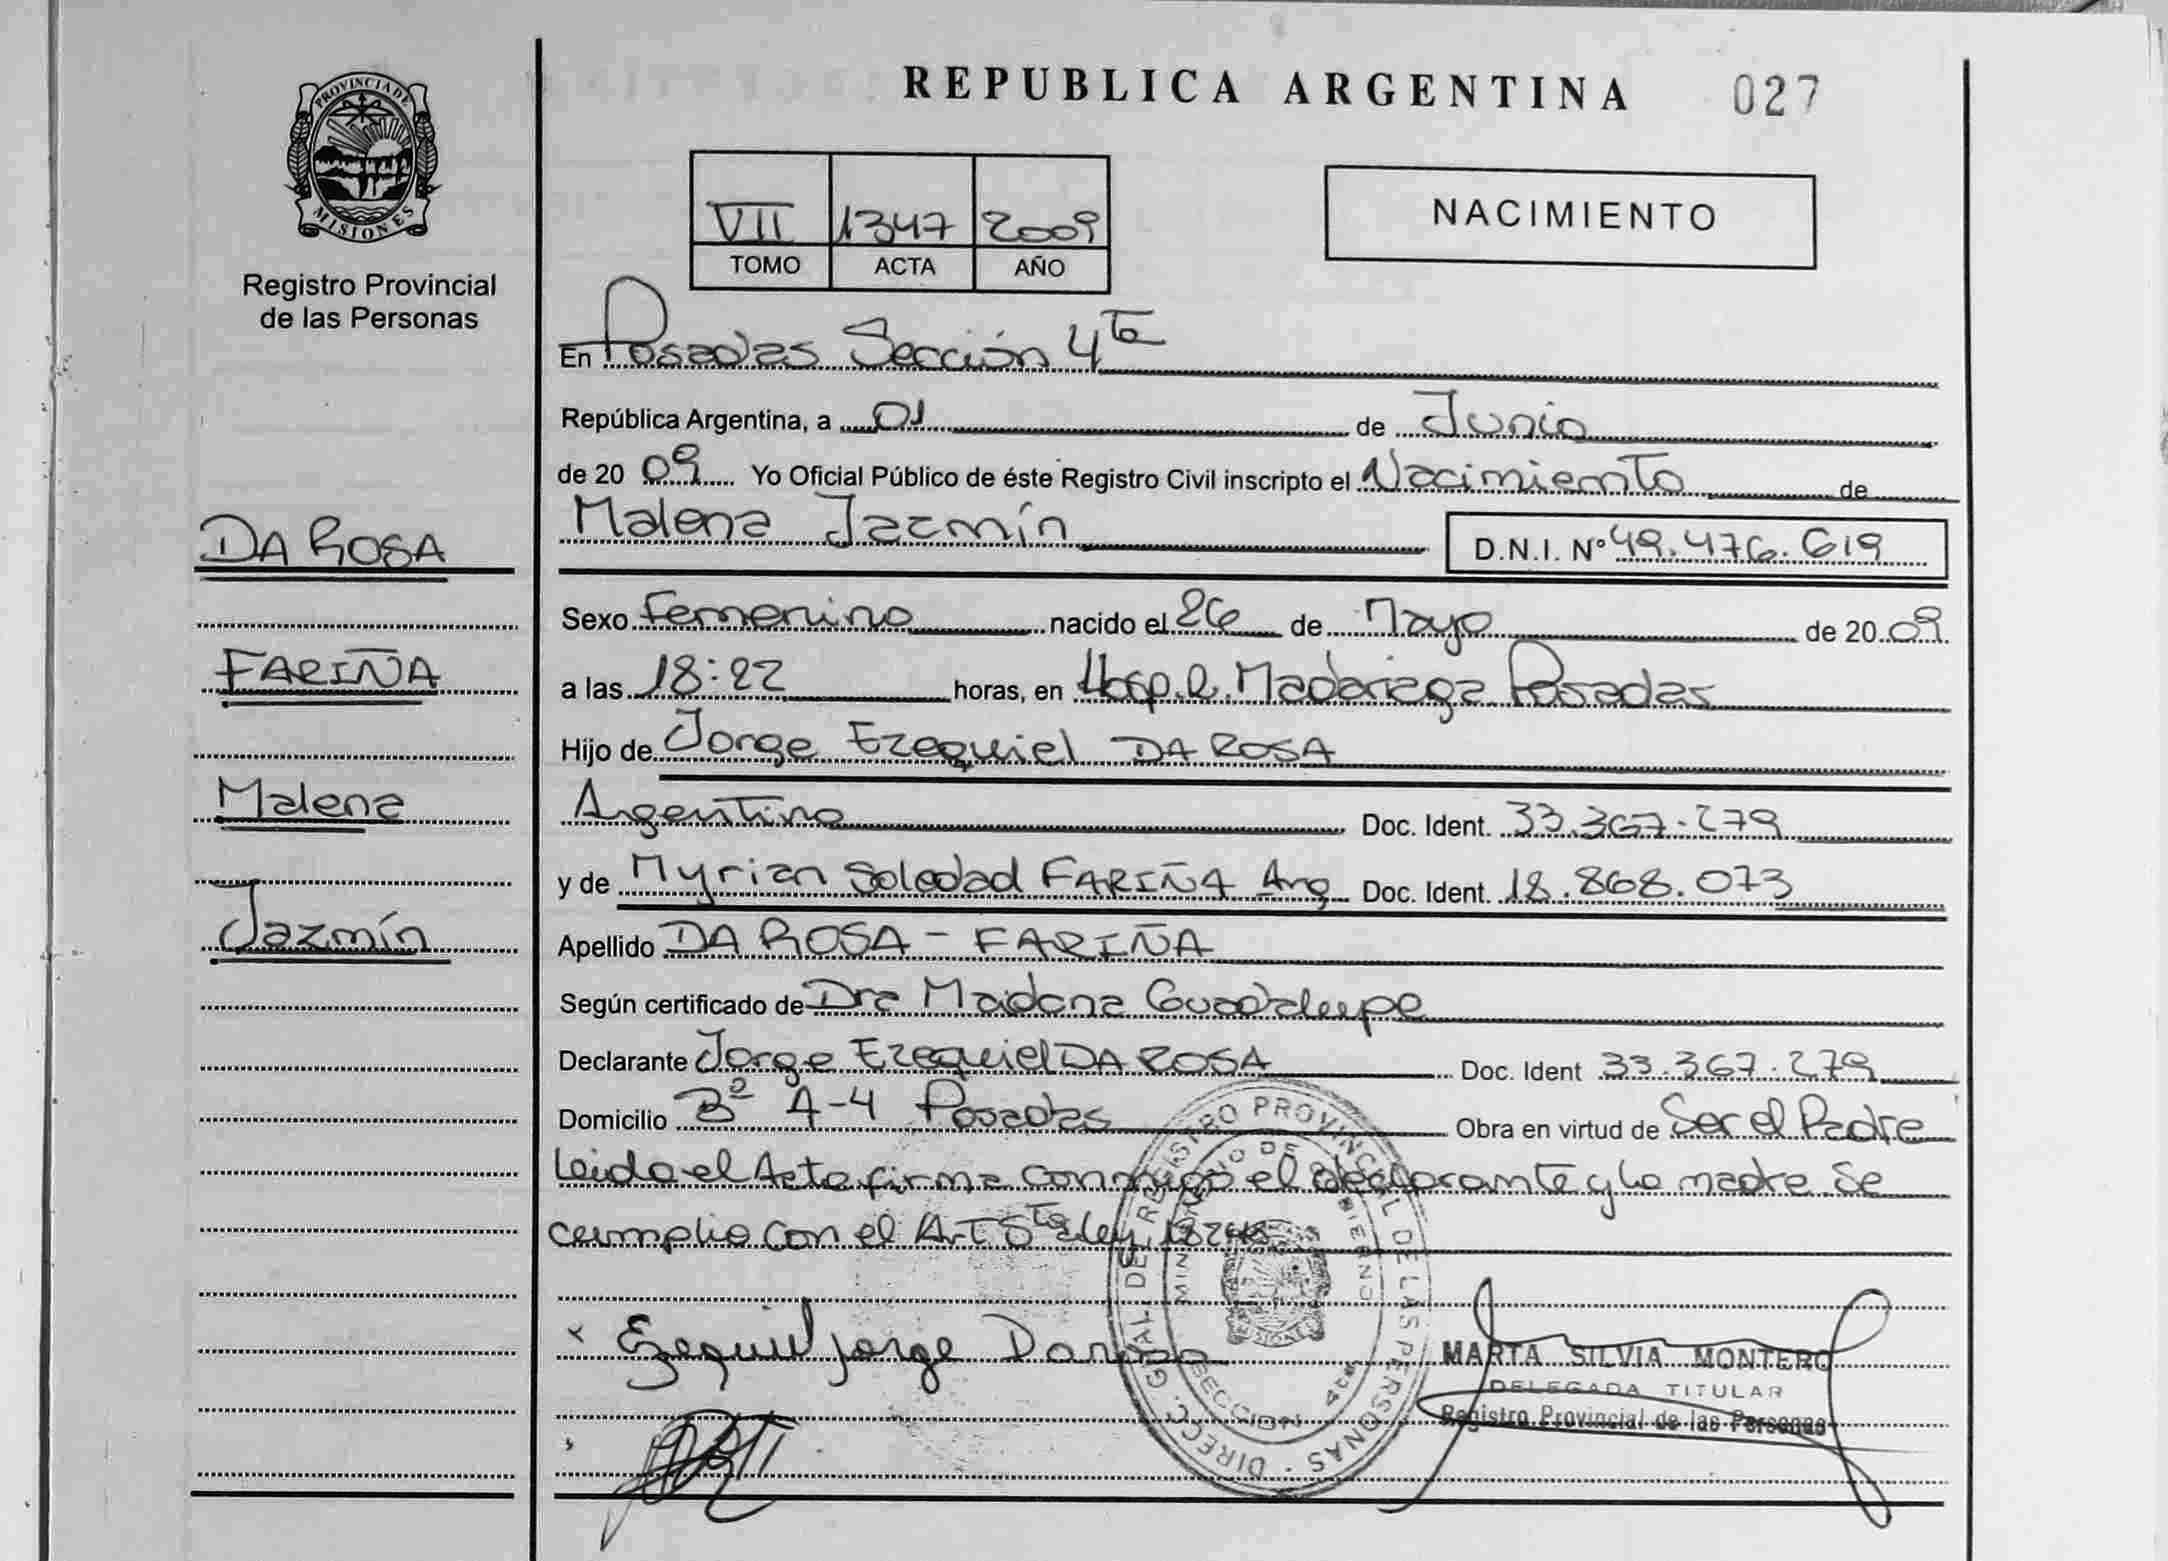 REPUBLICA ARGENTINA 027
PROVINCIA DE MISIONES
Registro Provincial
de las Personas
VII 1347 2009
TOMO ACTA AÑO
NACIMIENTO
En Posadas Sección 4ta
República Argentina, a 01 de Junio
de 20 09 Yo Oficial Público de éste Registro Civil inscripto el Nacimiento de
Malena Jazmín D.N.I. Nº 49.476.619
Sexo Femenino nacido el 26 de Mayo de 20 09
a las 18:22 horas, en Hosp. R. Madariaga Posadas
Hijo de Jorge Ezequiel DA ROSA
Argentino Doc. Ident. 33.367.279
y de Myrian Soledad FARIÑA Arg Doc. Ident. 18.868.073
Apellido DA ROSA - FARIÑA
Según certificado de Dra Maidana Guadalupe
Declarante Jorge Ezequiel DA ROSA Doc. Ident 33.367.279
Domicilio Bº A-4 Posadas Obra en virtud de Ser el Padre
Leido el Acta firma conmigo el declarante y la madre Se
cumplio con el Art 5ta ley 18248
Ezequiel Jorge Darosa
MARTA SILVIA MONTERO
DELEGADA TITULAR
Registro Provincial de las Personas
DIRECC. GRAL DE REGISTRO PROVINCIAL DE LAS PERSONAS
MINISTERIO DE GOBIERNO
SECCION 4ta
DA ROSA
FARIÑA
Malena
Jazmín